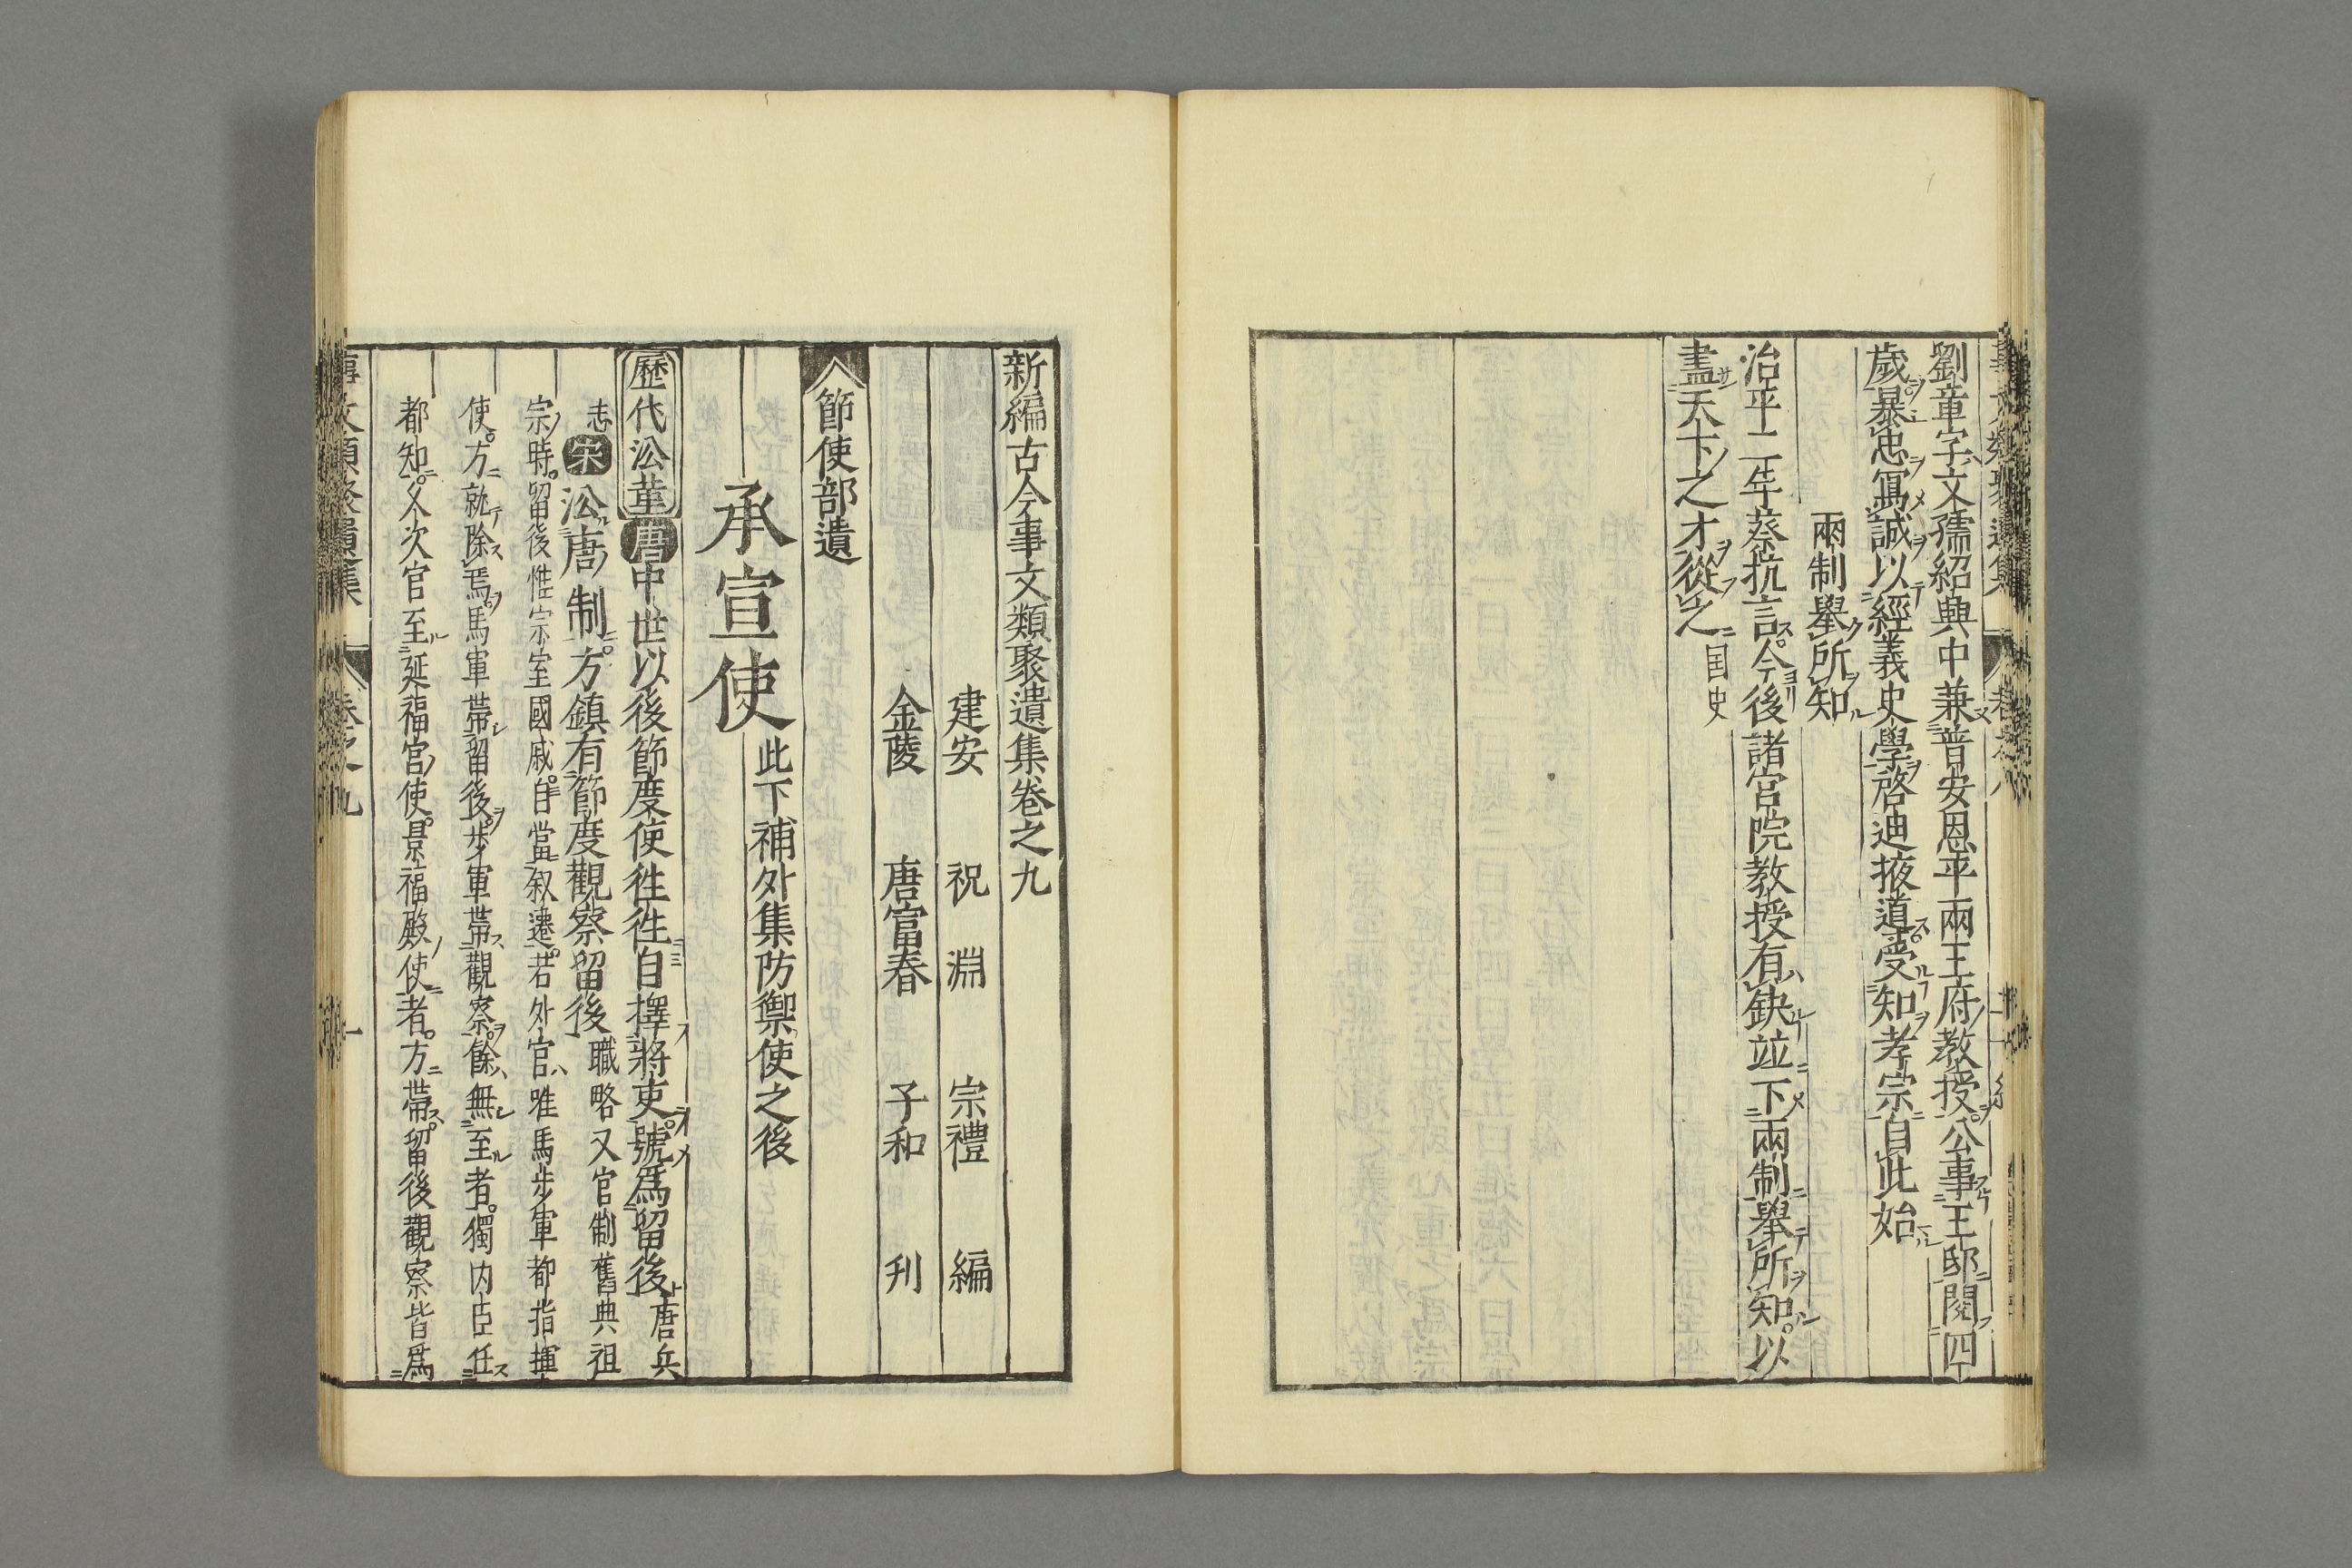 劉章字文孺紹興中兼普安恩平兩王府教授公事王邸閱四
歲暴忠寫誠以經義史學啓迪掖道受知孝宗自此始
兩制舉所知
治平二年蔡抗言今後諸宮院教授有缺並下兩制舉所知以
盡天下之才從之国史
新編古今事文類聚遺集卷之九
建安 祝 淵 宗禮 編
金陵 唐富春 子和 刋
節使部遺
承宣使此下補外集防禦使之後
歷代㳂革唐中世以後節度使徃徃自擇將吏號爲留後唐兵
志宋㳂唐制方鎮有節度觀察留後職略又官制舊典祖
宗時留後惟宗室國戚自當叙遷若外官唯馬步軍都指揮
使方就除焉馬軍帶留後步軍帶觀察餘無至者獨内臣任
都知父次官至延福宮使景福殿使者方帶留後觀察皆爲
事文類聚遺集 卷之九 一